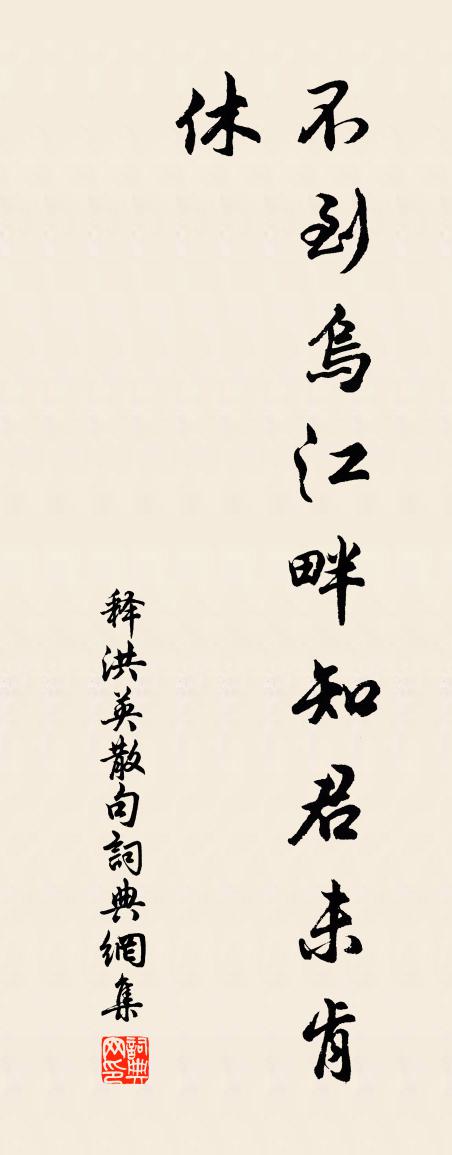 不到烏江畔知君未肯
休
释洪英散句詞典網集
詞典网印